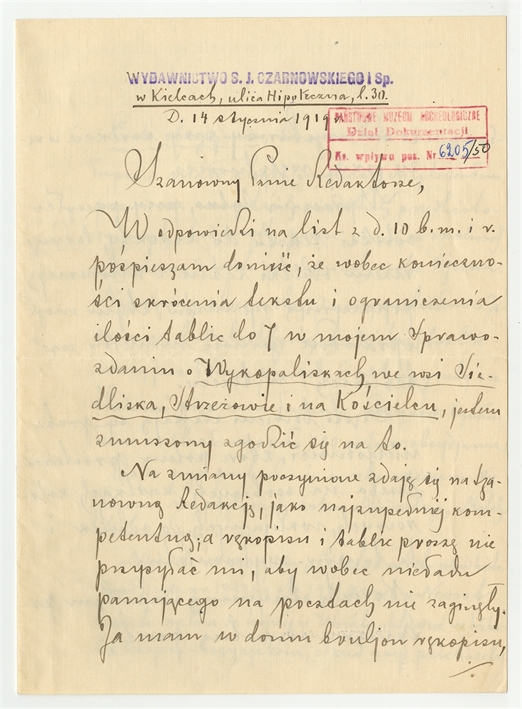 WYDAWNICTWO S. J. CZARNOWSKIEGO I Sp.
w Kielcach, ulica Hipoteczna, l. 30.
D. 14 stycznia 1919 r.
PAŃSTWOWE MUZEUM ARCHEOLOGICZNE
Dział Dokumentacji
Ks. wpływu poz. Nr 6205/50
Szanowny Panie Redaktorze,
W odpowiedzi na list z d. 10 b. m. i r.
pospieszam donieść, że wobec konieczno-
ści skrócenia tekstu i ograniczenia
ilości tablic do 7 w mojem Sprawo-
zdaniu o Wykopaliskach we wsi Sie-
dliska, Strzeżowie i na Kościelcu, jestem
zmuszony zgodzić się na to.
Na zmiany poczynione zdaję się na Sza-
nowną Redakcję, jako najzupełniej kom-
petentną; a rękopisu i tablic proszę nie
przysyłać mi, aby wobec nieładu
panującego na pocztach nie zaginęły.
Ja mam w domu bruljon rękopisu,
./.